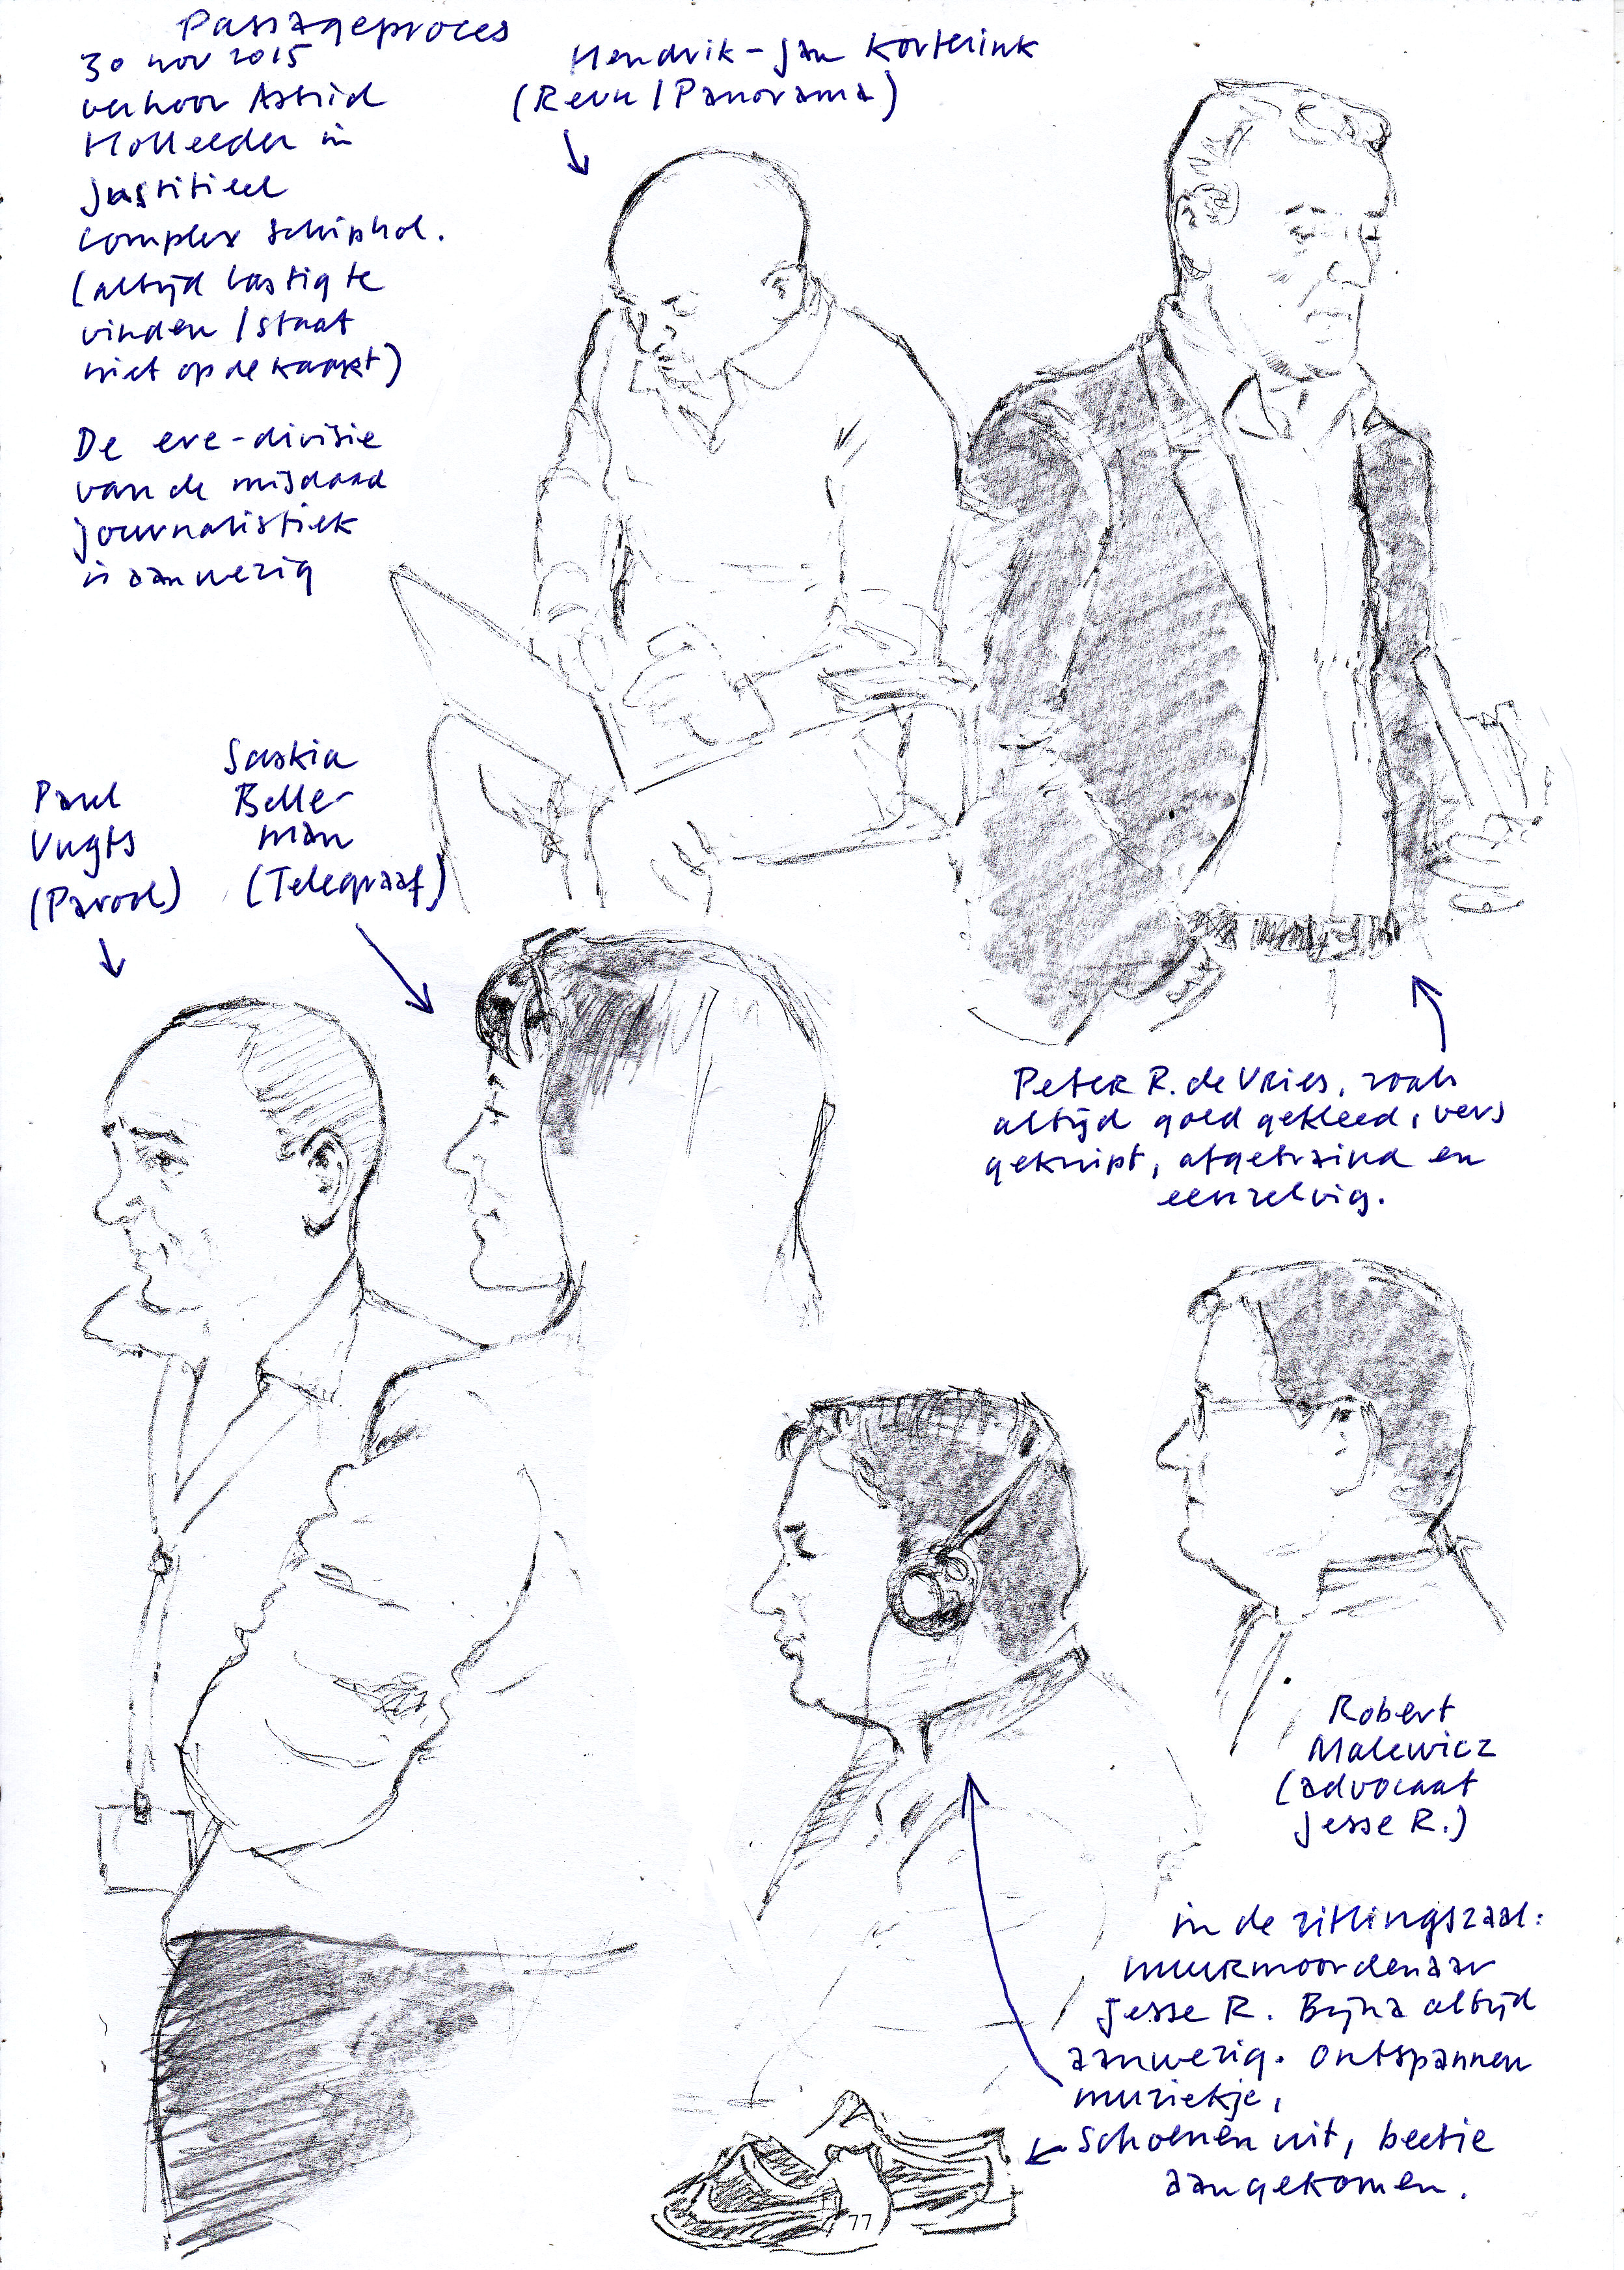 Passageproces
30 nov 2015
verhoor Astrid
Holleeder in
Justitieel
complex Schiphol.
(altijd lastig te
vinden / staat
niet op de kaart)
De ere-divisie
van de misdaad
journalistiek
is aanwezig
Hendrik-Jan Korterink
(Revu / Panorama)
Paul
Vugts
(Parool)
Saskia
Belle-
man
(Telegraaf)
Peter R. de Vries, zoals
altijd goed gekleed, vers
geknipt, afgetraind en
eenzelvig.
Robert
Malewicz
(advocaat
Jesse R.)
in de zittingszaal:
muurmoordenaar
Jesse R. Bijna altijd
aanwezig. Ontspannen
muziekje,
schoenen uit, beetje
aangekomen.
77